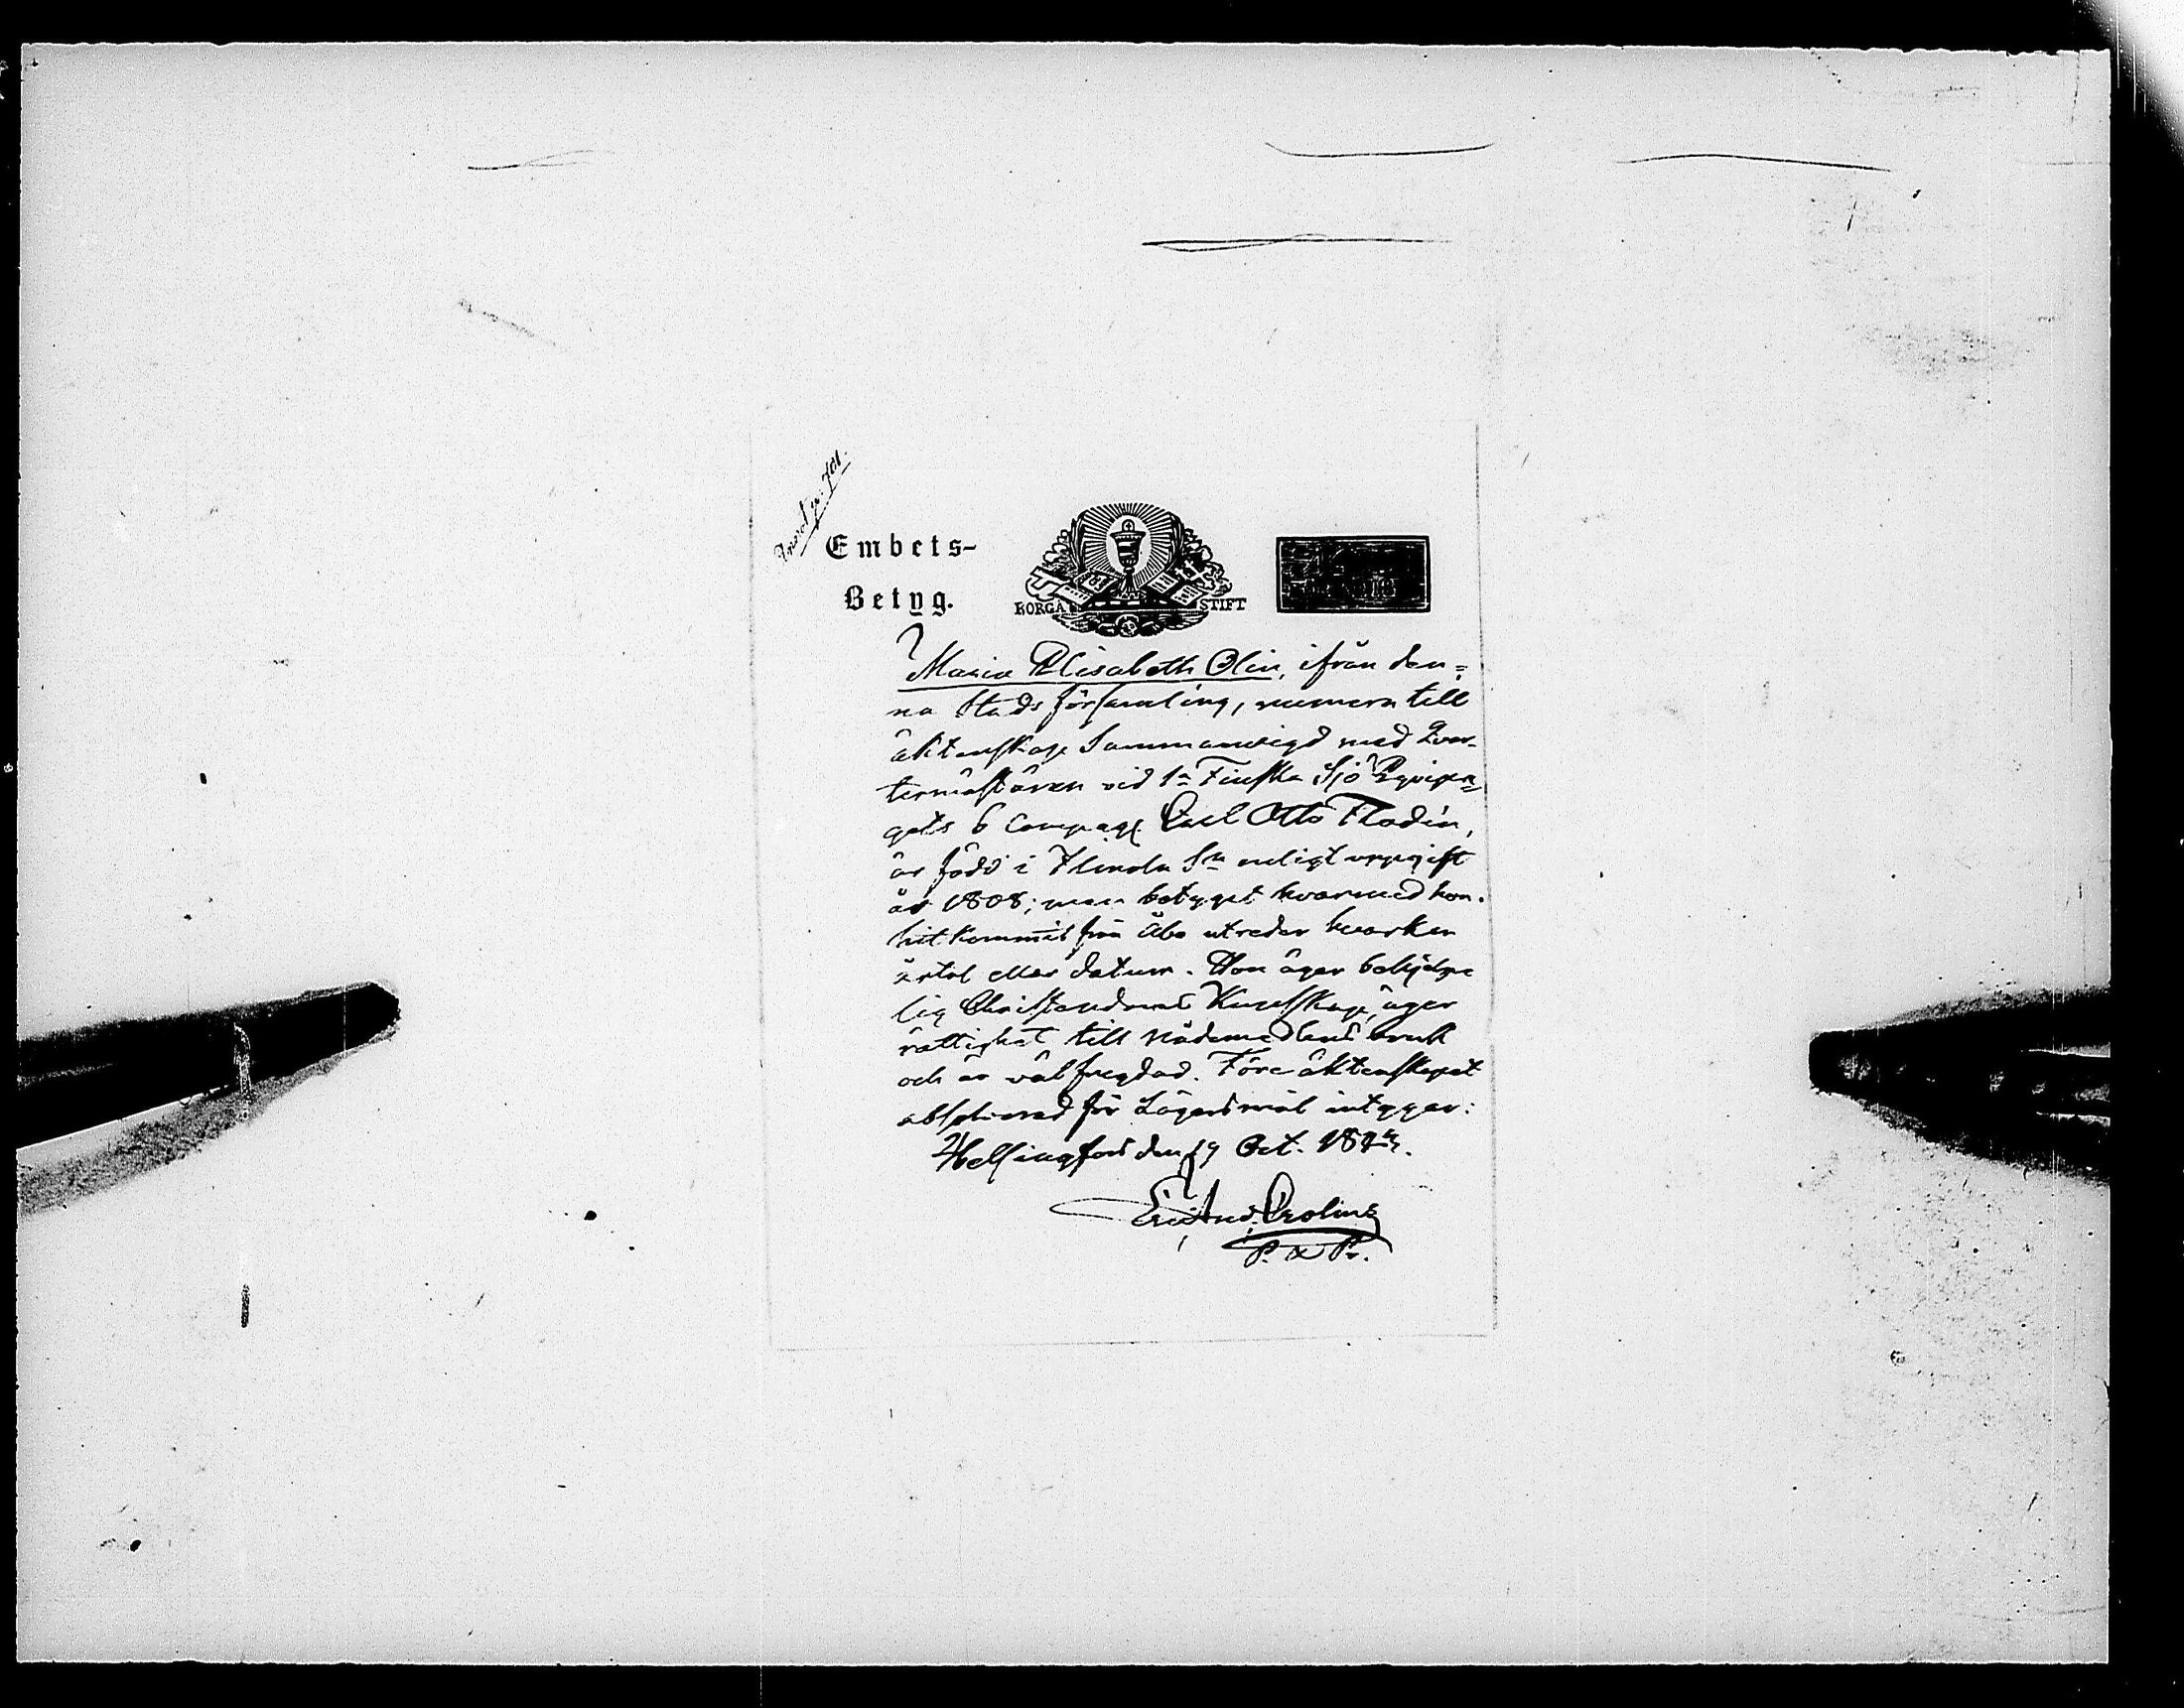 Embets-
Betyg.
BORGÅ STIFT
Maria Elisabeth Olin, ifrån den-
na Stads församling, numera till
äktenskap Sammanvigd med Qvar-
termästaren vid 1a Finska Sjö Equipa-
gets 6 Compagn Carl Otto Flodin,
är född i Flinola Sn enligt uppgift
år 1808; men betyget hvarmed hon
hit kommit från Åbo utreder hvarken
årtal eller datum. Hon äger behjelp-
lig Christendoms Kunskap, äger
rättighet till Nådemedlens bruk
och är välfregdad. Före äktenskapet
absolverad för Lägersmål intygar:
Helsingfors den 19 Oct. 184
P. x Pr.